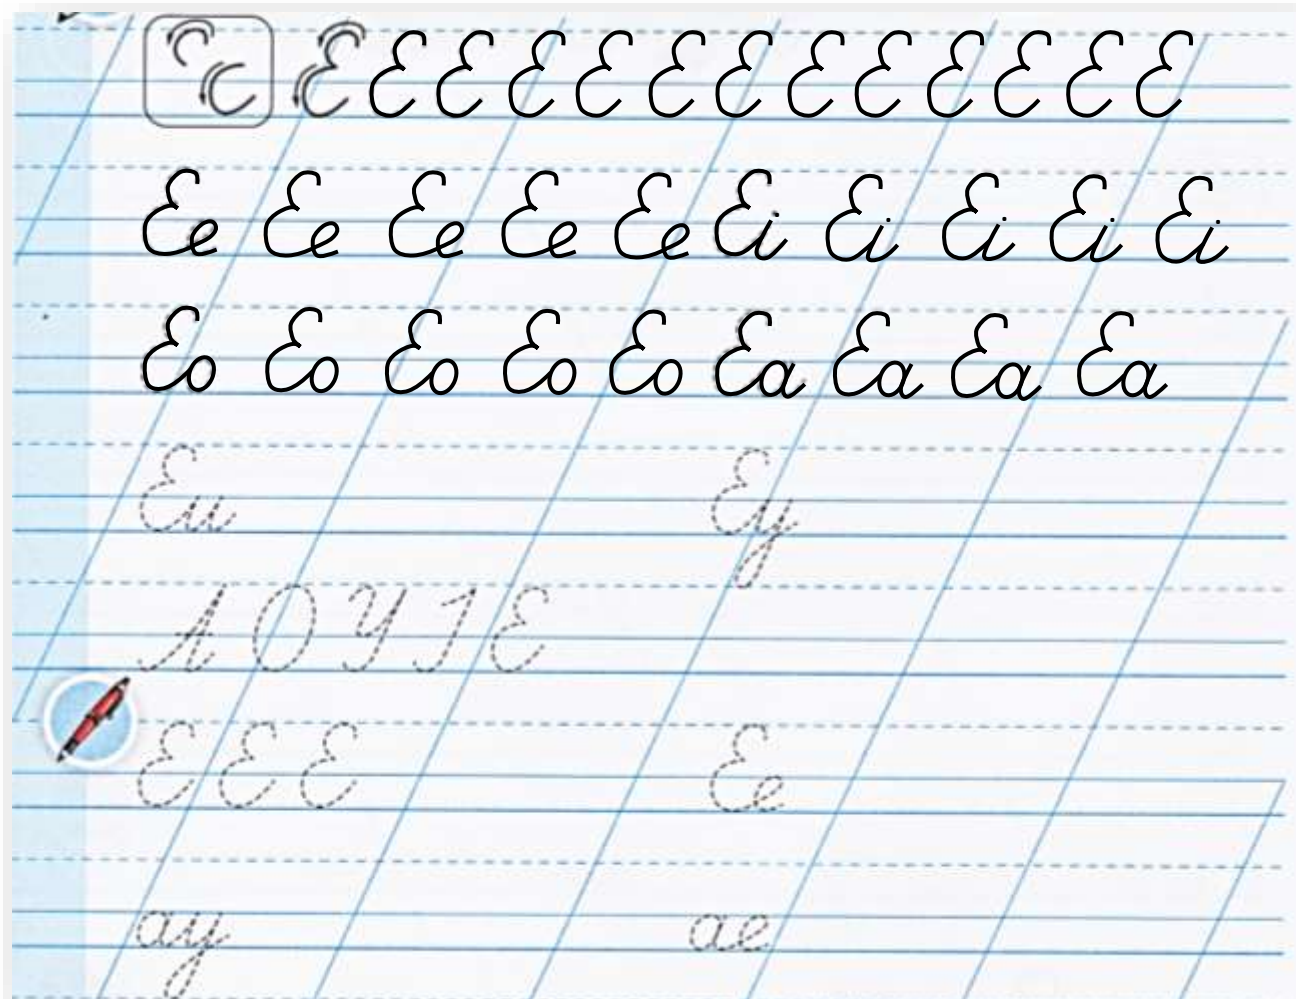 Е Е Е Е Е Е Е Е Е Е Е Е Е
Ее Ее Ее Ее Ее Еі Еі Еі Еі Еі
Ео Ео Ео Ео Ео Еа Еа Еа Еа
Еи Еу
А О У І Е
Е Е Е Ее
ау ае